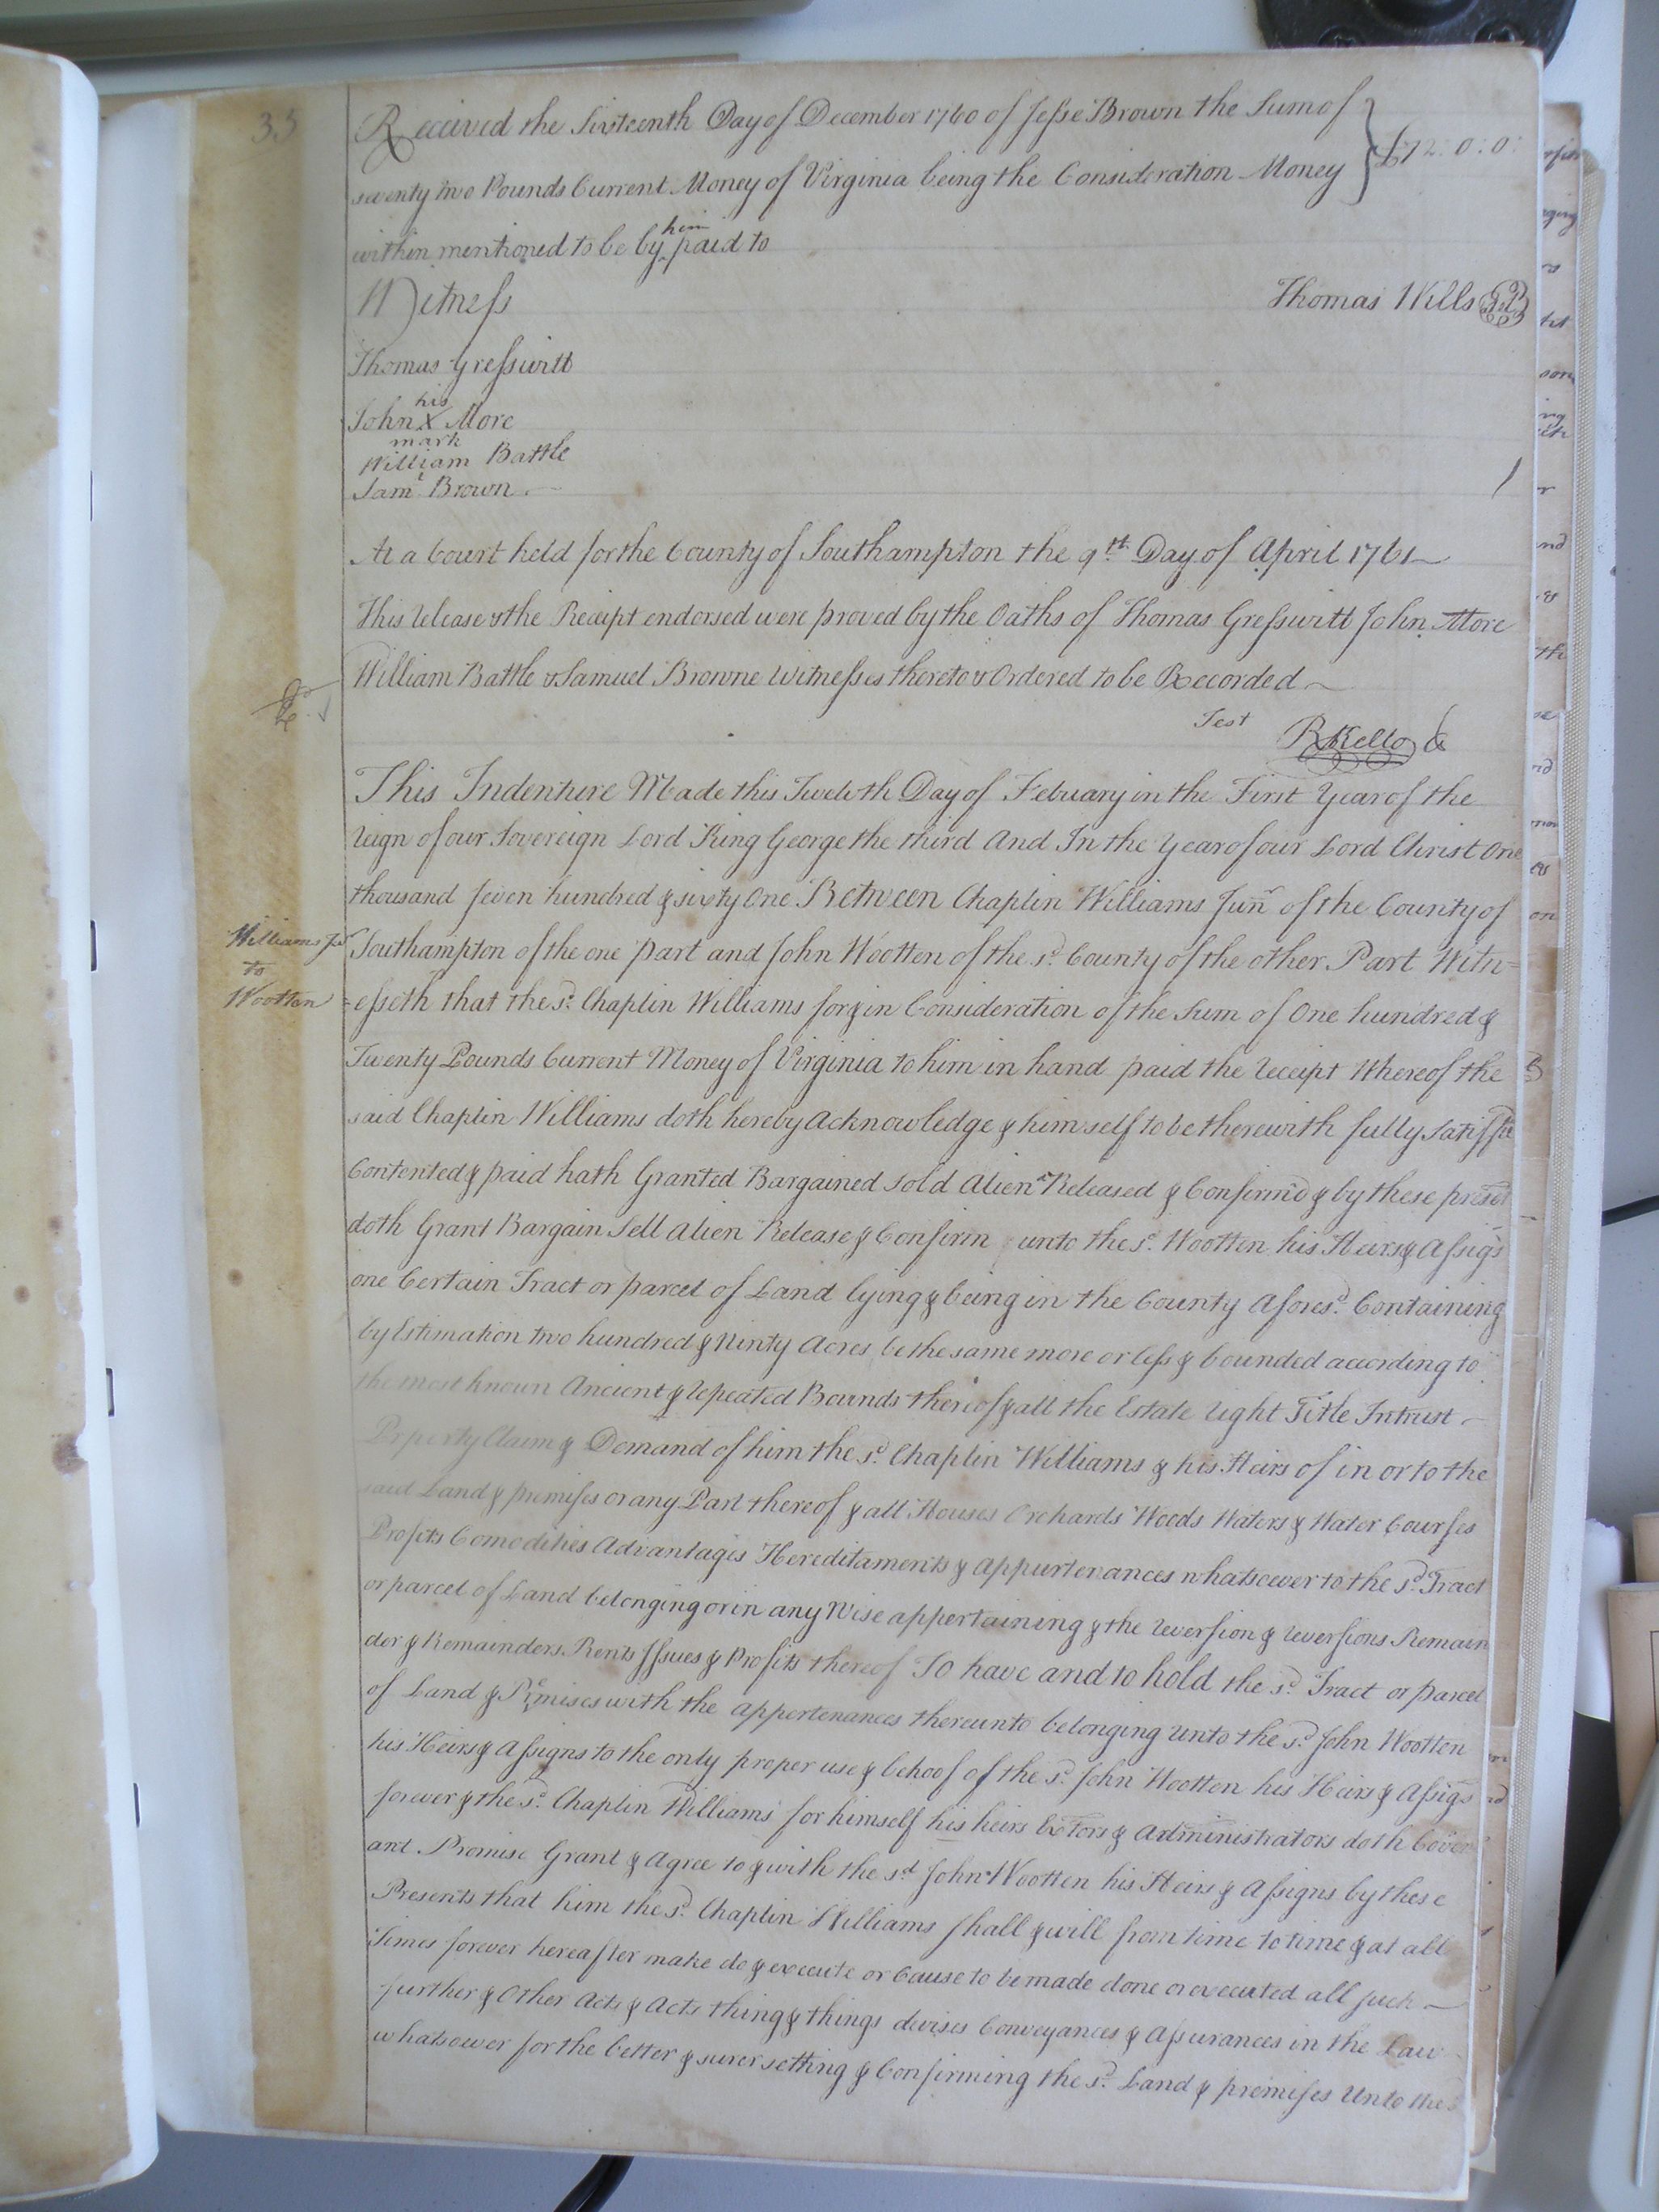 33
Received the Sixteenth Day of December 1760 of Jesse Brown the Sum of
seventy two Pounds Current Money of Virginia being the Consideration Money } £72:0:0:
within mentioned to be by him paid to
Witness
Thomas Wills
Thomas Gresswitt
his
John X More
mark
William Battle
Saml. Brown.
At a Court held for the County of Southampton the 9th. Day of April 1761
This Release & the Receipt endorsed were proved by the Oaths of Thomas Gresswitt John More
William Battle & Samuel Browne Witnesses thereto & Ordered to be Recorded
Test RKello
This Indenture Made this Twelvth Day of Febuary in the First Year of the
Reign of our Sovereign Lord King George the third And In the Year of our Lord Christ One
thousand seven hundred & sixty One Between Chaplin Williams Junr of the County of
Williams Jr
to
Wootten
Southampton of the one Part and John Wootten of the sd. County of the other Part Witn=
=esseth that the sd. Chaplin Williams for & in Consideration of the Sum of One hundred &
Twenty Pounds Current Money of Virginia to him in hand paid the Receipt Whereof the
said Chaplin Williams doth hereby Acknowledge & himself to be therewith fully Satisfie
Contented & paid hath Granted Bargained Sold Alien'd Released & Confirm'd & by these presen
doth Grant Bargain Sell Alien Release & Confirm unto the sd. Wootten his Heirs & Assigs
one Certain Tract or parcel of Land lying & being in the County Aforesd. Containing
by Estimation two hundred & Ninty Acres be the same more or less & bounded according to
the most known Ancient & Repeated Bounds thereof & all the Estate Right Title Intrust
Property Claim & Demand of him the sd. Chaplin Williams & his Heirs of in or to the
said Land & premises or any Part thereof & all Houses Orchards Woods Waters & Water Courses
Profits Comodities Advantages Hereditaments & Appurtenances whatsoever to the sd. Tract
or parcel of Land belonging or in any Wise appertaining & the Reversion & Reversions Remain
der & Remainders Rents Issues & Profits thereof To have and to hold the sd. Tract or parcel
of Land & Premises with the Appertenances thereunto belonging Unto the sd. John Wootten
his Heirs & Assigns to the only proper use & behoof of the sd. John Wootten his Heirs & Assigs
forever & the sd. Chaplin Williams for himself his heirs Extors & Administrators doth Coven
ant Promise Grant & Agree to & with the sd John Wootten his Heirs & Assigns by these
Presents that him the sd. Chaplin Williams shall & will from time to time & at all
Times forever hereafter make do & execute or Cause to be made done or executed all such
further & Other Acts & Acts thing & things devises Conveyances & Assurances in the Law
whatsower for the better & surer setting & Confirming the sd. Land & premises Unto the